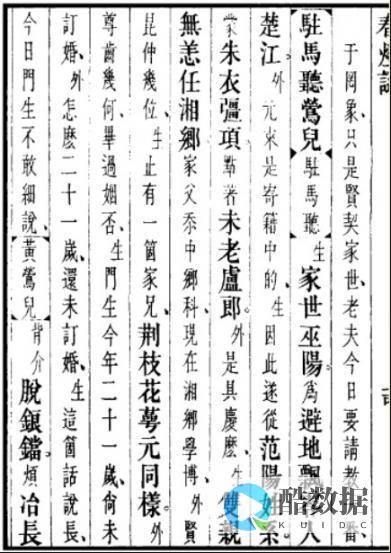 于罔象、只是賢契家世老夫今日要請教一番
駐馬聽鶯兒 駐馬聽 生 家世巫陽、爲避地飄移入
楚江、外 元來是寄籍中的、生 因此遂從范陽姓系、
蒙朱衣彊項點著未老盧郎、外 是具慶麽、生 雙親
無恙任湘鄉家父忝中鄉科現在湘鄉學博、外 賢
昆仲幾位、生 止有一箇家兄、荆枝花萼元同樣、外
尊齒幾何、畢過姻否、生 門生今年二十一歲尙未
訂婚、外 怎麽二十一歲還未訂婚、生 這箇話說長、
今日門生不敢細說、黃鶯兒 背介 脫鋃鐺、煩冶長
酷数据